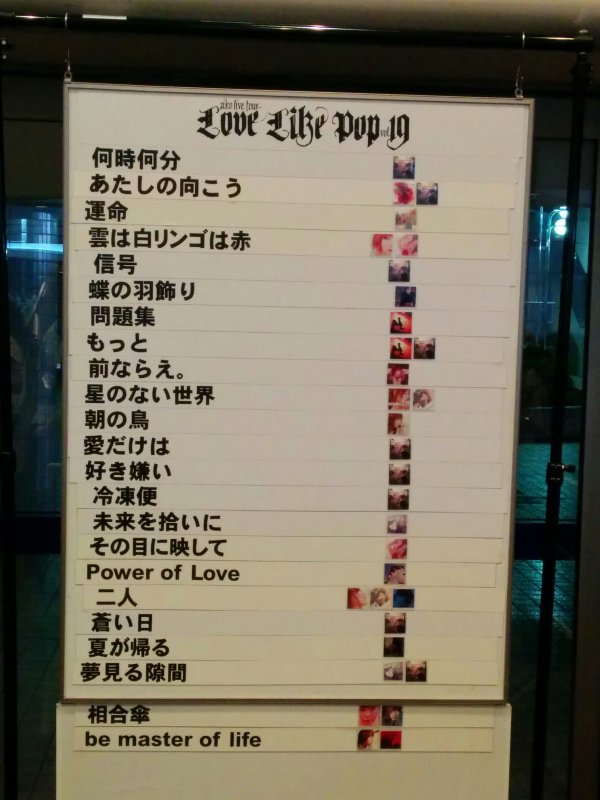 aiko live tour
Love Like Pop vol.19
何時何分
あたしの向こう
運命
雲は白リンゴは赤
信号
蝶の羽飾り
問題集
もっと
前ならえ。
星のない世界
朝の鳥
愛だけは
好き嫌い
冷凍便
未来を拾いに
その目に映して
Power of Love
二人
蒼い日
夏が帰る
夢見る隙間
相合傘
be master of life